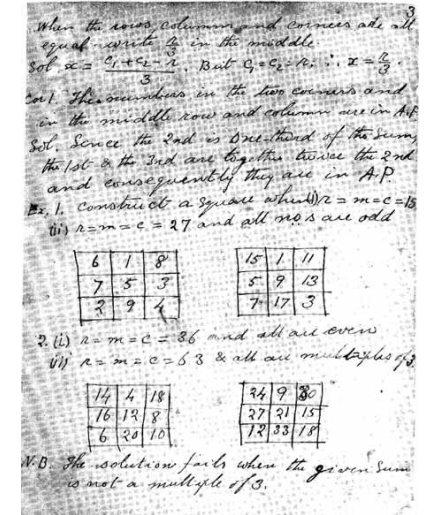 3
When the rows, columns and corners are all
equal write r/3 in the middle
Sol x = (c₁ + c₂ - r)/3. But c₁ = c₂ = r. ∴ x = r/3.
Cor 1. The numbers in the two corners and
in the middle row and column are in A.P.
Sol. Since the 2nd is one third of the sum,
the 1st & the 3rd are together twice the 2nd
and consequently they are in A.P.
Ex. 1. Construct a square when (i) r = m = c = 15
(ii) r = m = c = 27 and all nos are odd
6 1 8 15 1 11
7 5 3 5 9 13
2 9 4 7 17 3
2. (i) r = m = c = 36 and all are even
(ii) r = m = c = 63 & all are multiples of 3.
14 4 18 24 9 30
16 12 8 27 21 15
6 20 10 12 33 18
N.B. The solution fails when the given sum
is not a multiple of 3.